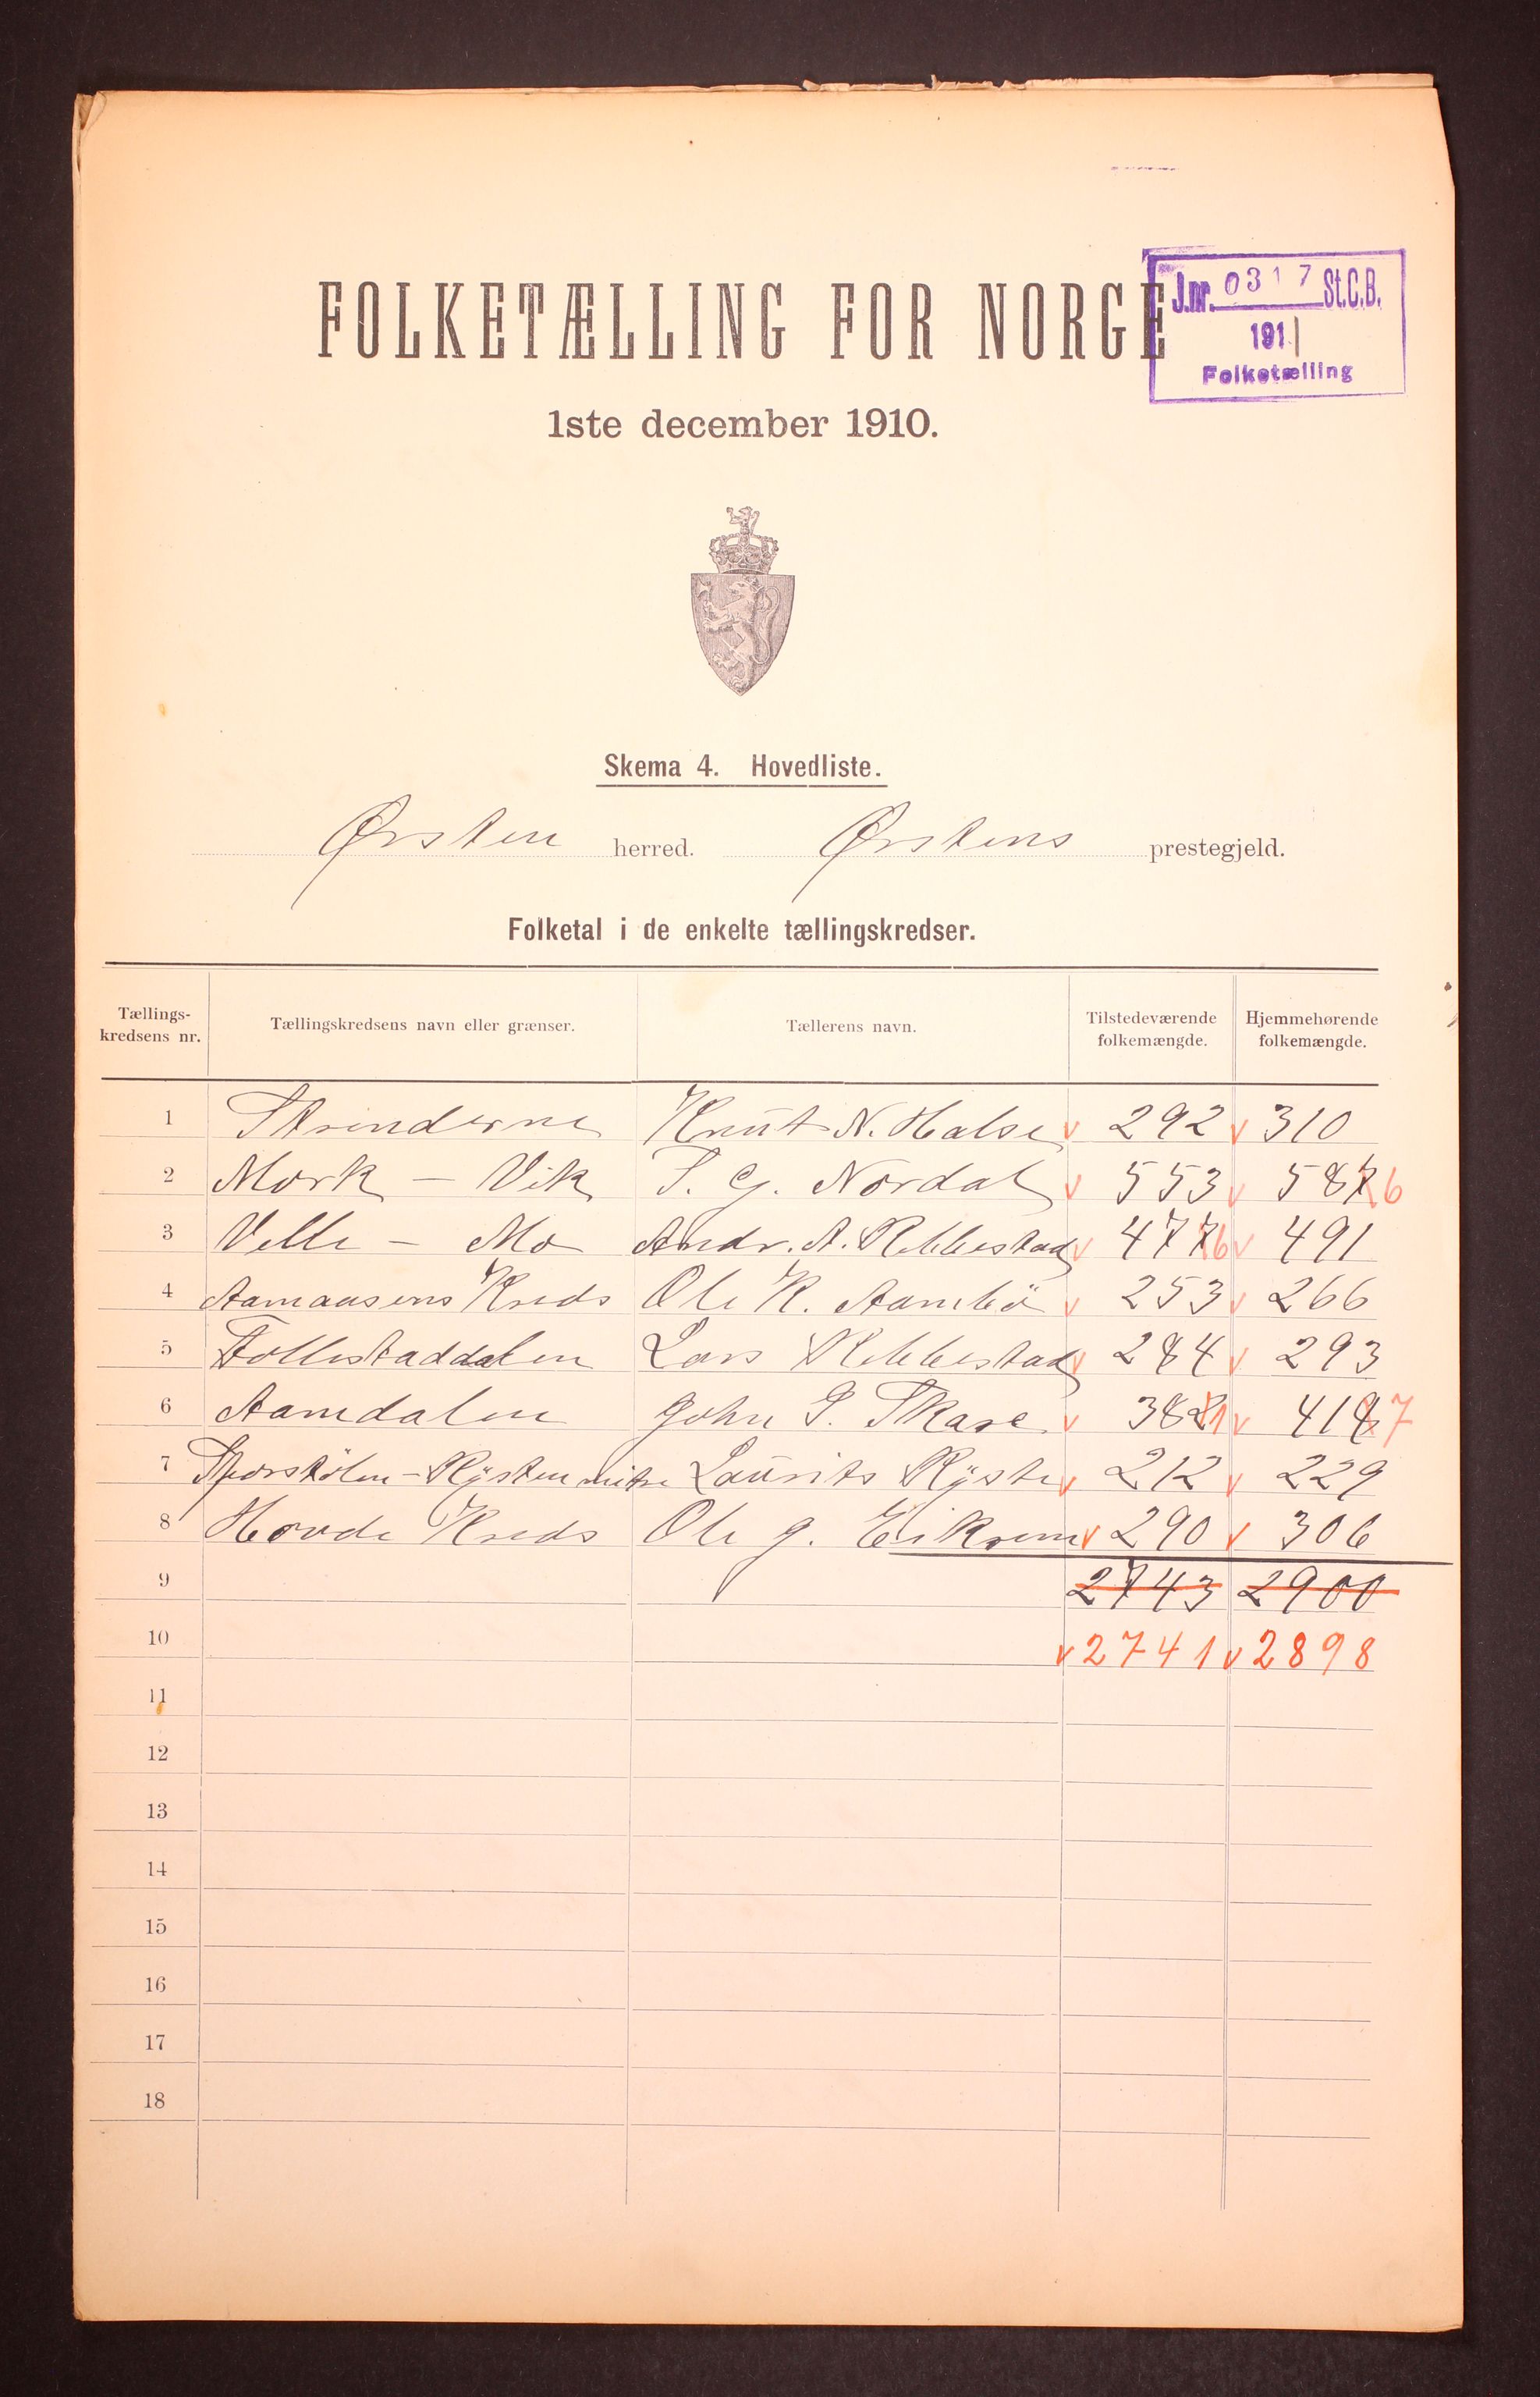 J.nr. 0317 St.C.B.
1911
Folketælling
FOLKETÆLLING FOR NORGE
1ste december 1910.
Skema 4. Hovedliste.
Ørsten herred. Ørstens prestegjeld.
Folketal i de enkelte tællingskredser.
Tællings-kredsens nr. Tællingskredsens navn eller grænser. Tællerens navn. Tilstedeværende folkemængde. Hjemmehørende folkemængde.
1 Strinderne Knut N. Halse v 292 v 310
2 Mork - Vik S. G. Nordal v 553 v 587 6
3 Velle - Mo Andr. A. Rebbestad v 477 6 v 491
4 Aamaasens Kreds Ole K. Aambö v 253 v 266
5 Follestaddalen Lars Rebbestad v 284 v 293
6 Aamdalen John S. Skare v 382 1 v 418 7
7 Rysten Laurits Ryste v 212 v 229
8 Hovde Kreds Ole J. Eikrem v 290 v 306
9 2743 2900
10 v 2741 v 2898
11
12
13
14
15
16
17
18